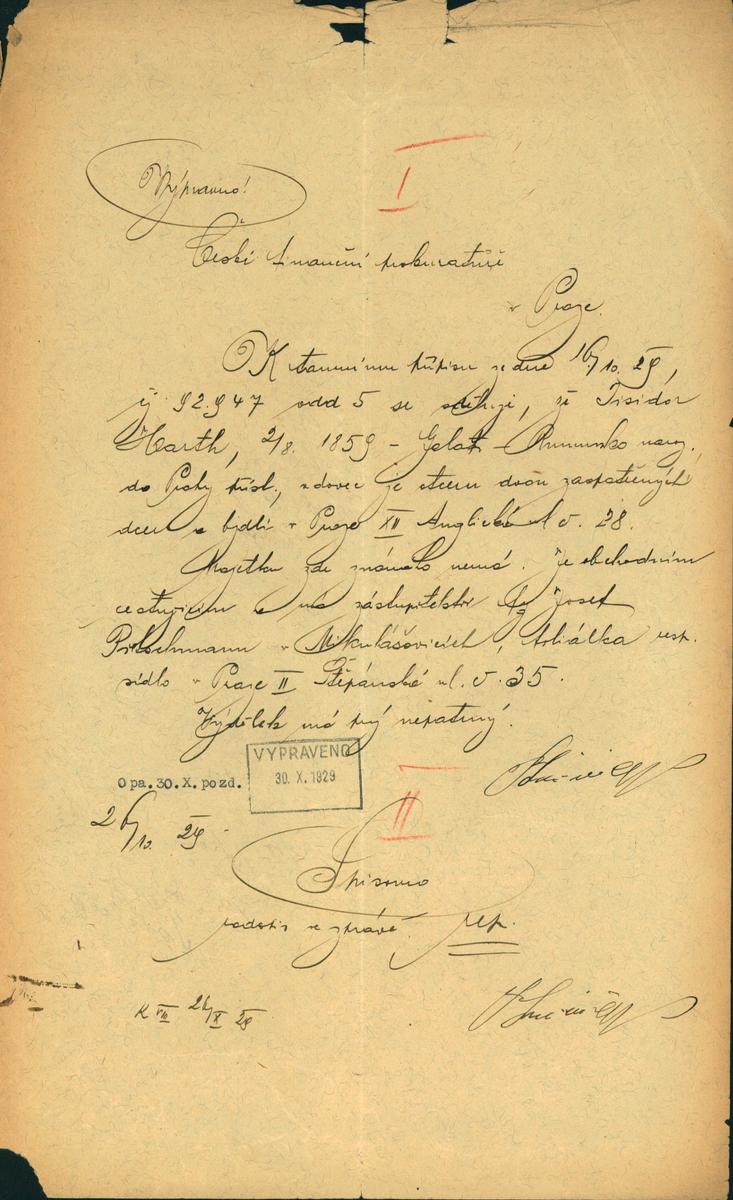 Výpravno!
I
České finanční prokuratuře
v Praze.
K tamnímu přípisu ze dne 16/10. 29,
čj 92.947 odd 5 se sděluje, že Isidor
Harth, 2/8. 1859 – Galat – Rumunsko naroz.
do Prahy přísl., vdovec je otcem dvou zaopatřených
dcer a bydlí v Praze XII Anglická ul č. 28.
Majetku zde známého nemá. Je obchodním
cestujícím a má zástupitelství fy Josef
v Mikulášovicích, resp.
sídlo v Praze II Štěpánská ul. č. 35.
Výdělek má prý nepatrný.
VYPRAVENO
30. X. 1929
Opa. 30. X. pozd.
26/10. 29.
II
Spisovna
se zprávě. rep.
K VIII 26/X 29